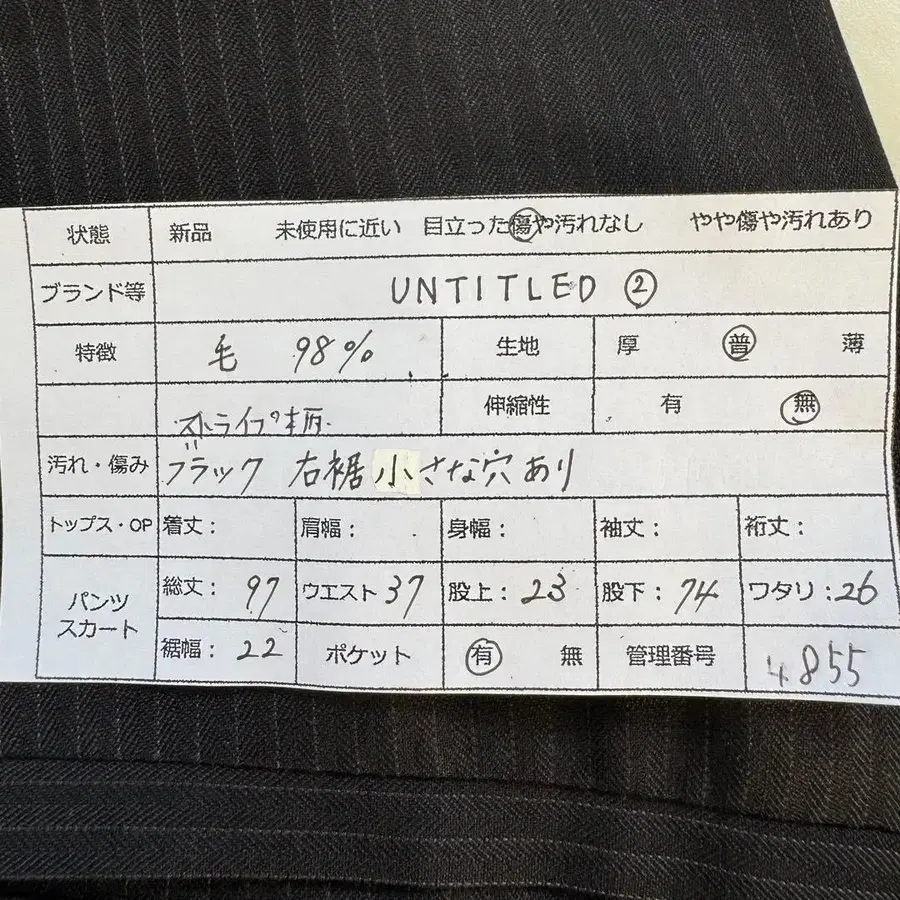 状態 新品 未使用に近い 目立った傷や汚れなし やや傷や汚れあり
ブランド等 UNTITLED ②
特徴 毛 98% 生地 厚 普 薄
ストライプ柄 伸縮性 有 無
汚れ・傷み ブラック 右裾 小さな穴あり
トップス・OP 着丈: 肩幅: 身幅: 袖丈: 裄丈:
パンツ スカート 総丈: 97 ウエスト 37 股上: 23 股下: 74 ワタリ: 26
裾幅: 22 ポケット 有 無 管理番号 4855